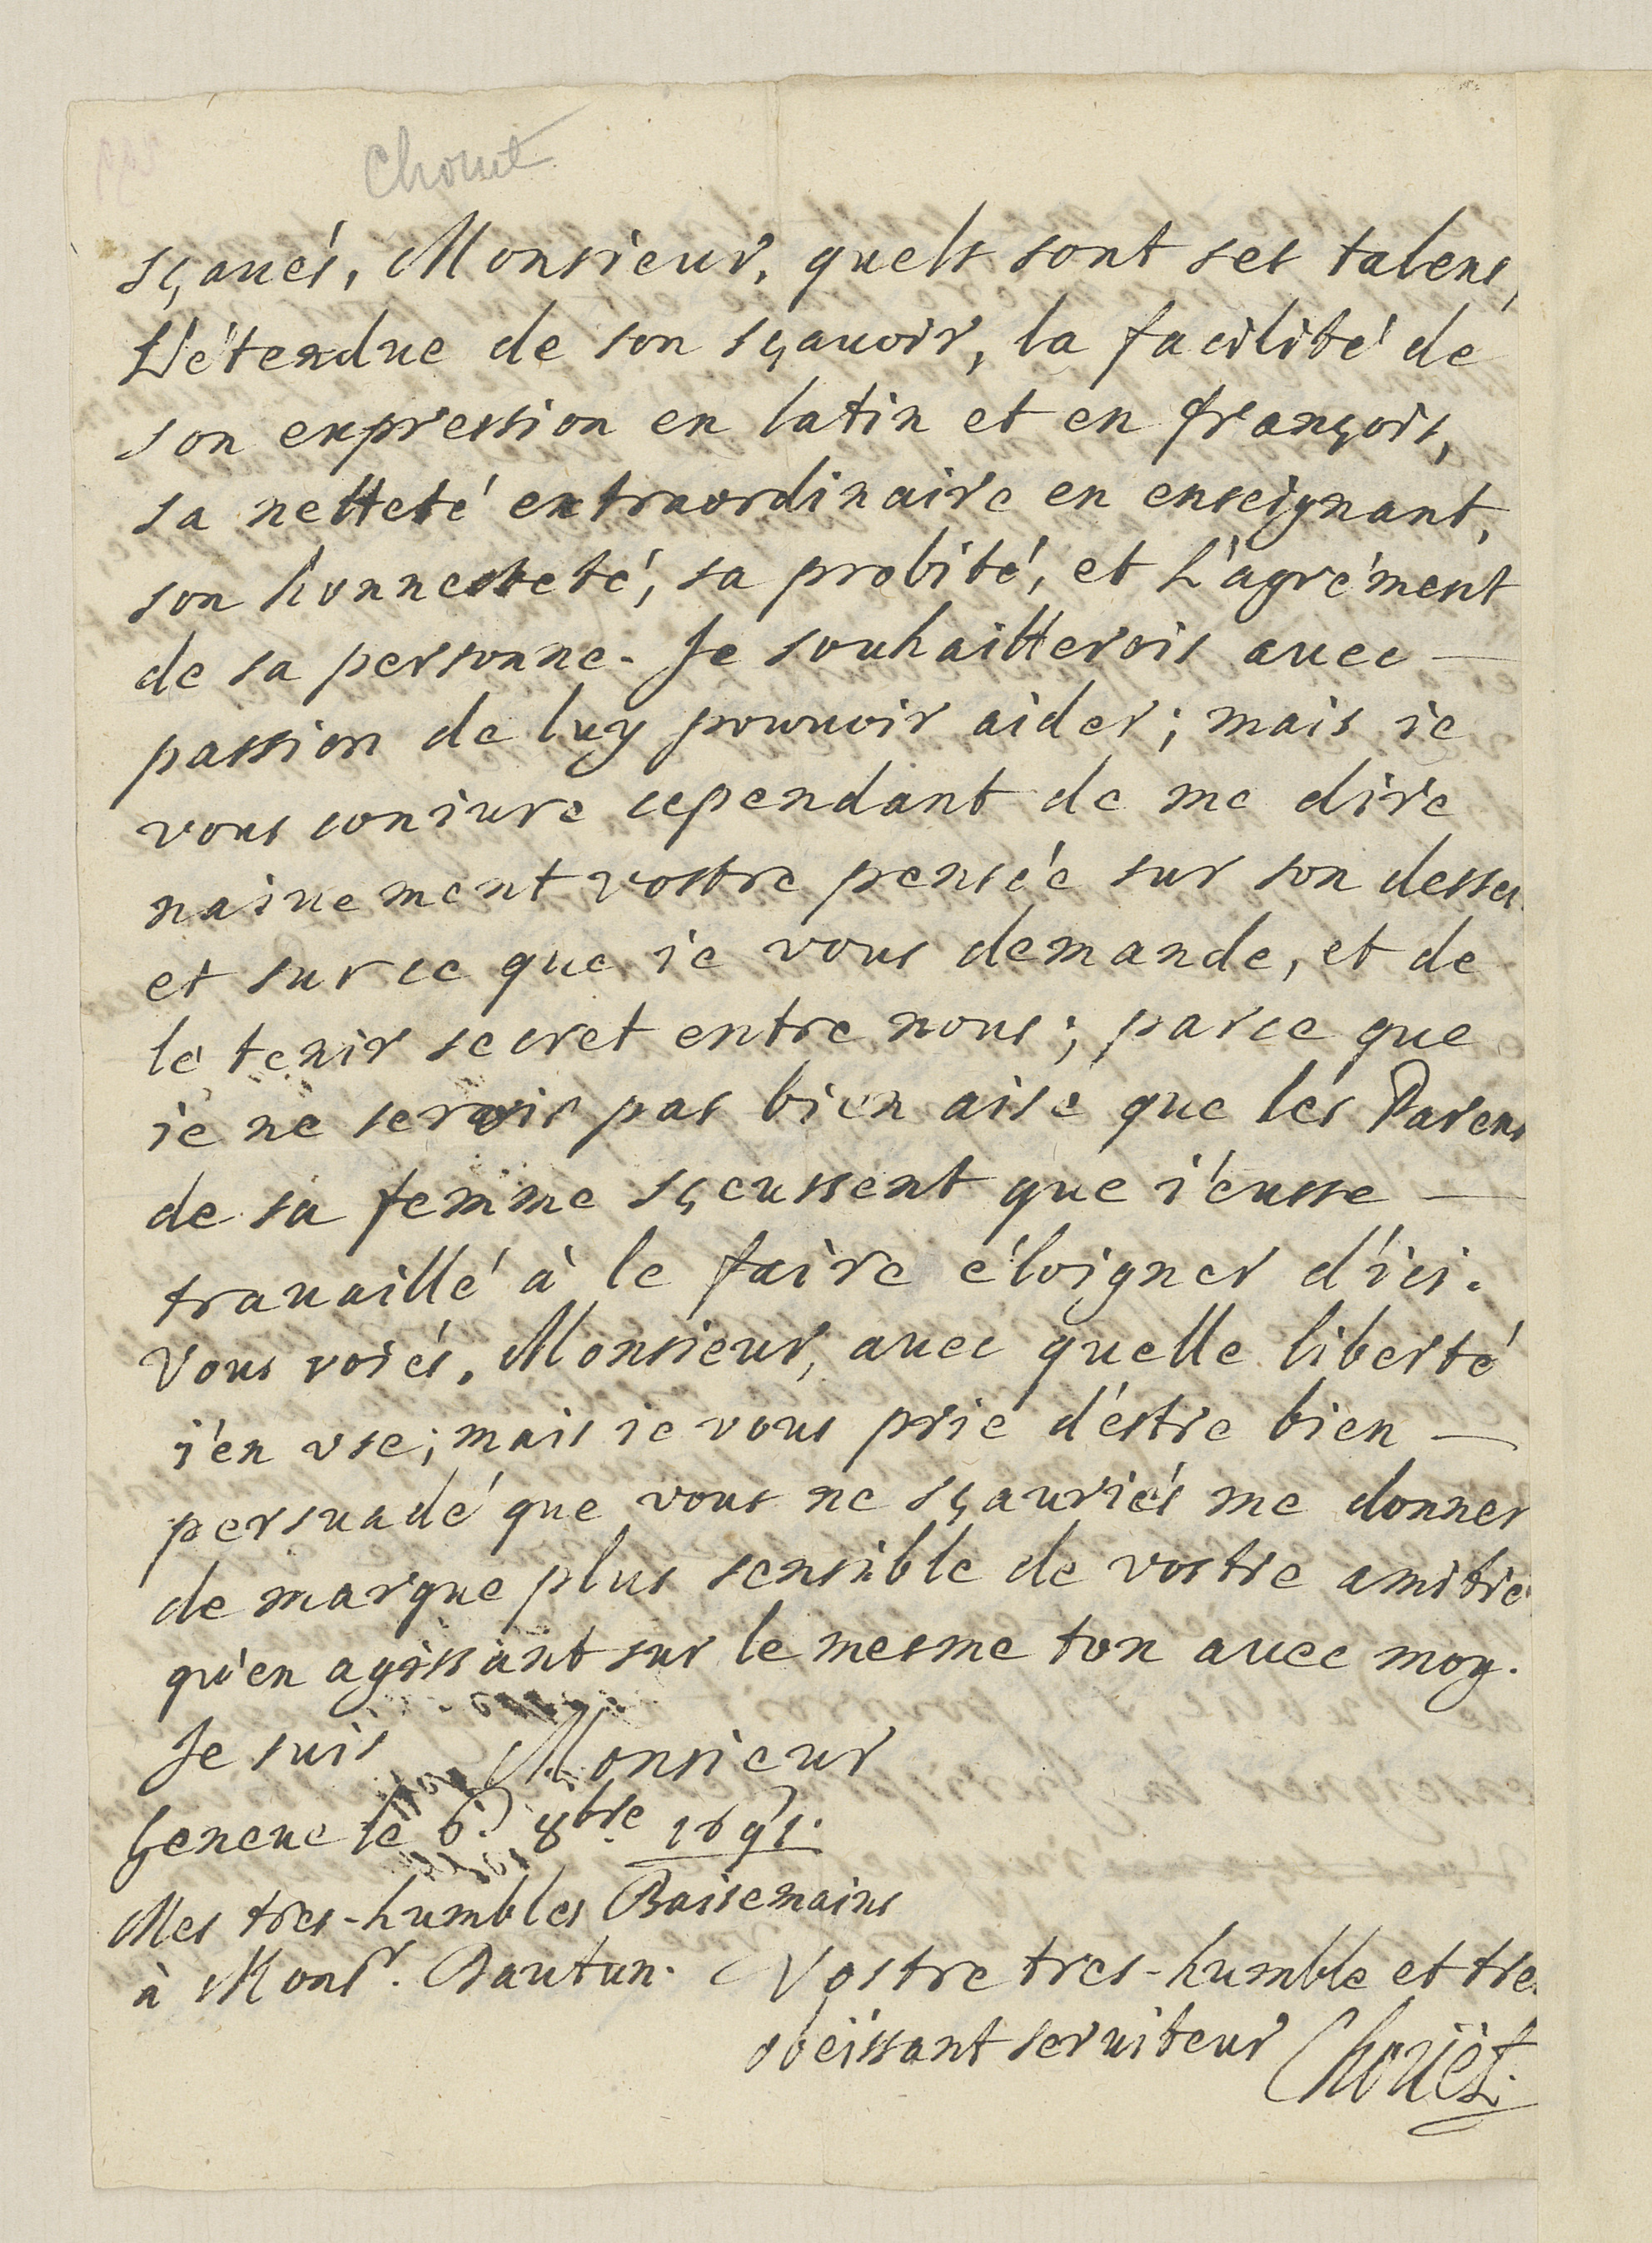 Chouet
sçaués, Monsieur, quels sont ses talens,
L'étendue de son sçauoir, la facilité de
son expression en latin et en françois,
sa netteté extraordinaire en enseignant,
son honnesteté, sa probité, et L'agrément
de sa personne. Je souhaitterois auec —
passion de luy pouuoir aider; mais ie
vous coniure cependant de me dire
naiuement vostre pensée sur son dessei
et sur ce que ie vous demande, et de
le tenir secret entre nous; parce que
ie ne serois pas bien aise que les Parens
de sa femme sçeussent que i'eusse —
trauaillé à le faire éloigner d'ici.
Vous voiés, Monsieur, auec quelle liberté
i'en vse; mais ie vous prie d'estre bien —
persuadé que vous ne sçauriés me donner
de marque plus sensible de vostre amitié
qu'en agissant sur le mesme ton auec moy.
Je suis Monsieur
Geneue le 6. 8bre 1691.
Mes tres-humbles Baisemains
à Monsr. Bautun. Vostre tres-humble et tres
obéissant seruiteur Choüet.